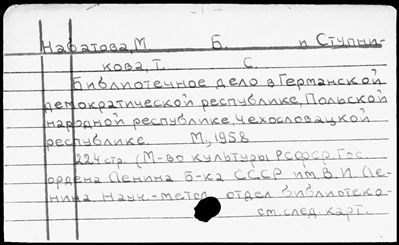 Набатова, М Б. и Ступни-
кова, Т. С.
Библиотечное дело в Германской
демократической республике, Польской
народной республике, Чехословацкой
республике. М., 1958
224 стр. (М-во культуры РСФСР Гос
ордена Ленина Б-ка СССР им. В. И. Ле-
нина. Науч.-метод. отдел библиотеко-
см. след. карт.